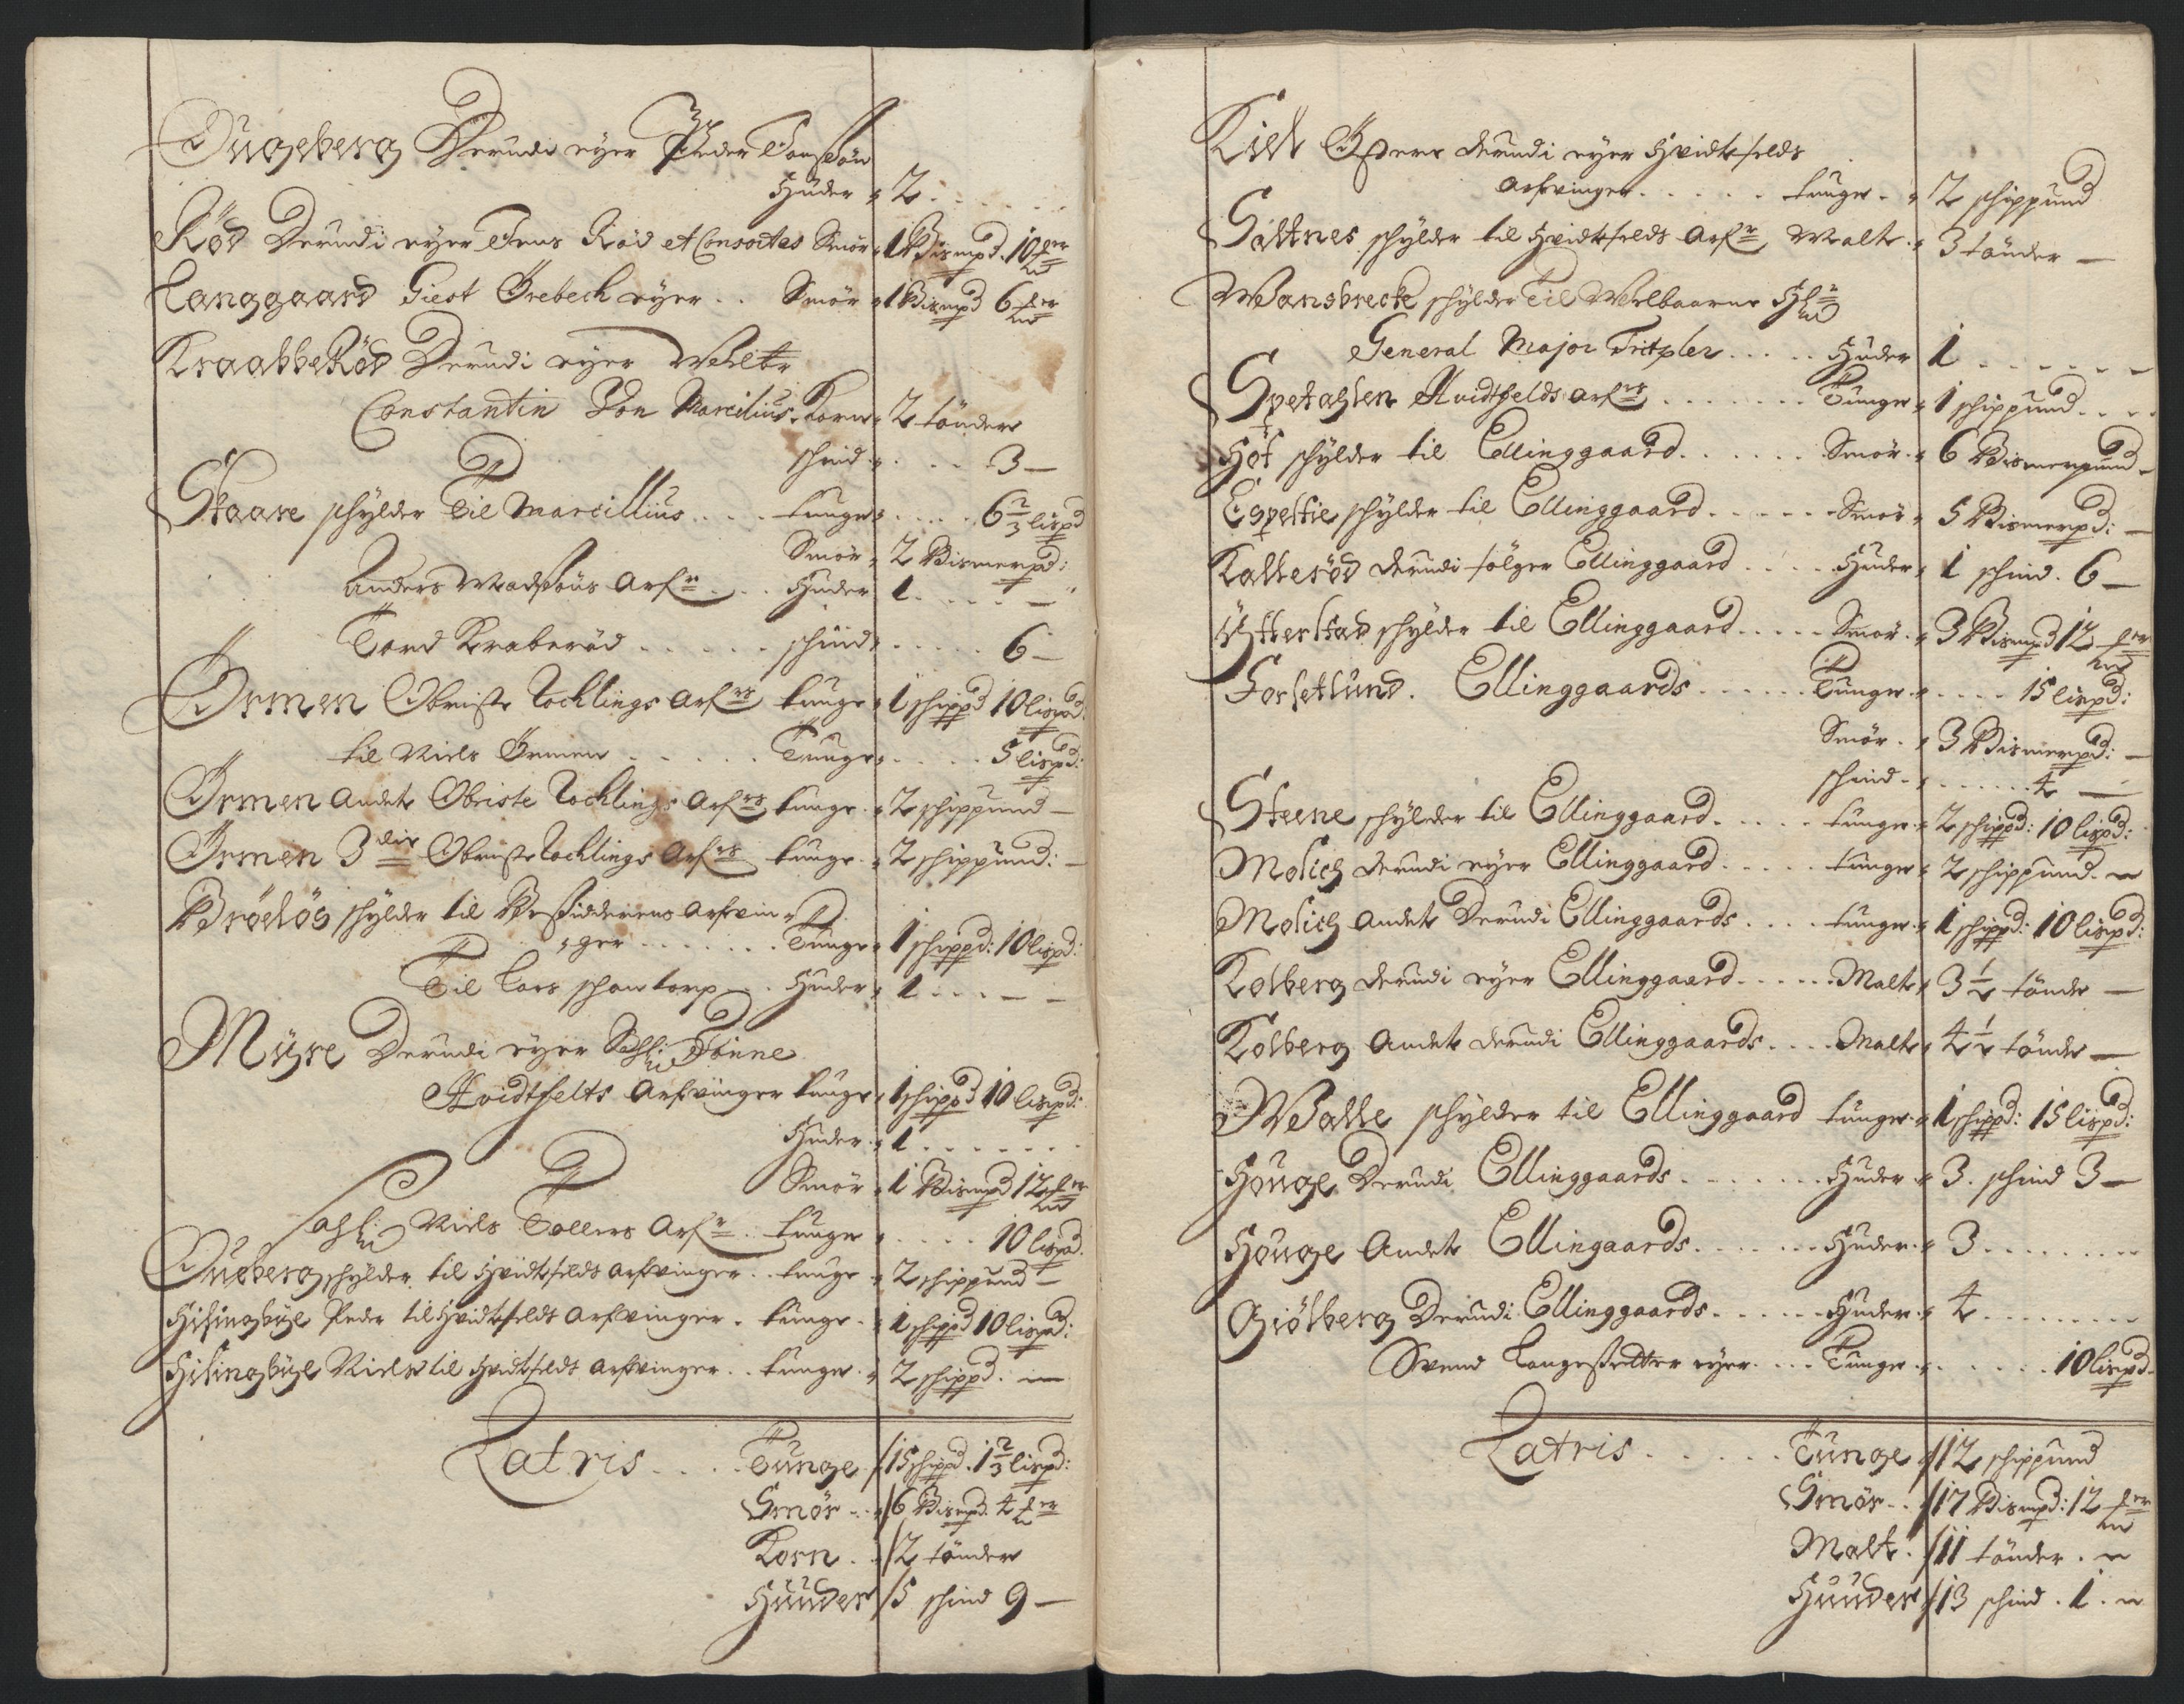 Dugeberg Derudi eyer Peder Torsßön
Huder 2
Röd Derudi eyer Jens Röd et Consortes Smör 1 Bismpd. 10 mer
Langgaard Giest Örebech eyer .. Smör 1 Bismpd 6 mer
KraabbeRöd Derudi eyer Welbr
Constantin Von Marcilius. Korn 2 tönder
schind .. 3 —
Skaare schylder Til Marcillius .... tunge .... 6 2/3 lispd
Smör 2 Bismerpd:
Anders Madsßöns Arfr .... Huder 1 ....
Tord Kraberöd ...... schind ..... 6 —
Ormen Obriste Tochlings Arfrs tunge 1 schippd 10 lispd.
til Niels Ormen ..... Tunge .... 5 lispd:
Ormen Andet Obriste Tochlings Arfrs tunge . 2 schippund —
Ormen 3die Obriste Tochlings Arfrs tunge . 2 schippund: —
Brödös schylder til Beßidderens Arfvin
ger ....... Tunge 1 schippd: 10 lispd:
Til Lars schontorp .. Huder 1 ....
Myre Derudi eyer Sahl: Tönne
Hvidtfelts Arfvinger tunge 1 schippd 10 lispd:
Huder . 1 ......
Smör 1 Bismpd 12 mer
Sahl: Niels Tollers Arfr .. tunge .... 10 lispd.
Dueberg schylder til Hvidtfelds Arfvinger .. tunge 2 schippund —
Hisingbye Peder til Hvidtfelds Arfvinger . tunge . 1 schippd 10 lispd:
Hisingbye Niels til Hvidtfelds Arfvinger .. tunge . 2 schippd. —
Latris .... Tunge 15 schippd. 1 2/3 lispd:
Smör .. 6 Bismpd. 4 mer
Korn .. 2 tönder
Huuder 5 schind 9 —
Kield Östern derudi eyer Hvidtfelds
Arfvinger ...... tunge . 2 schippund
Saltnes schylder til Hvidtfelds Arfr Malt . 3 tönder —
Wansbrecke schylder Til Welbaarne Hr
General Major Tritzler ..... Huder 1 ......
Spetalen Hvidtfelds Arfrs ....... Tunge 1 schippund ....
Hof schylder til Ellinggaard ...... Smör . 6 Bismerpund —
Espeltie schylder til Ellinggaard ...... Smör 5 Bismerpd: —
Kallesöd derudi fölger Ellinggaard .... Huder 1 schind . 6 —
Ytterstad schylder til Ellinggaard ..... Smör . 3 Bismpd 12 mer
Forsetlund. Ellinggaards ...... Tunge .... 15 lispd:
Smör . 3 Bismerpd: —
schind ...... 4 —
Steene schylder til Ellinggaard ..... tunge 2 schippd: 10 lispd:
Molich derudi eyer Ellinggaard ..... tunge 2 schippund.
Molich Andet Derudi Ellinggaards .... tunge 1 schippd: 10 lispd:
Kolberg derudi eyer Ellinggaard ..... Malt 3 1/2 tönde —
Kolberg Andet derudi Ellinggaards .... Malt 4 1/2 tönde —
Walle schylder til Ellinggaard tunge 1 schippd: 15 lispd:
Houge Derudi Ellinggaards ....... Huder 3. schind 3 —
Houge Andet Ellingaards ....... Huder . 3 .........
Giölberg Derudi Ellinggaards ..... Huder . 4 .........
Svend Langesßetter eyer .... Tunge ...... 10 lispd —
Latris ...... Tunge 12 schippund
Smör .. 17 Bismpd: 12 mer
Malt . 11 tönder .
Huuder 13 schind . 1 .